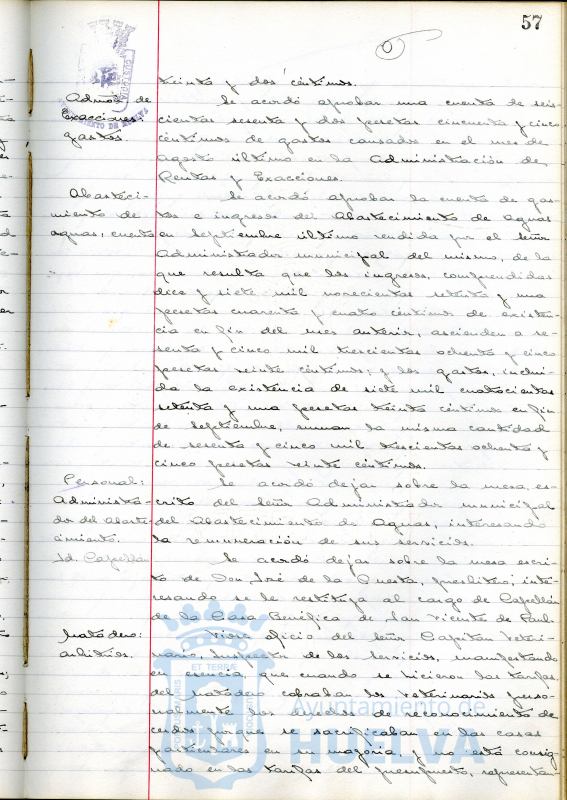 57
treinta y dos céntimos.
Admón de Se acordó aprobar una cuenta de seis-
Exacciones: cientas sesenta y dos pesetas cincuenta y cinco
gastos. céntimos de gastos causados en el mes de
agosto último en la Administración de
Rentas y Exacciones.
Abasteci- Se acordó aprobar la cuenta de gas-
miento de tos e ingresos del Abastecimiento de Aguas
aguas, cuenta en septiembre último rendida por el señor
Administrador municipal del mismo, de la
que resulta que los ingresos, comprendidas
diez y siete mil novecientas setenta y una
pesetas cuarenta y cuatro céntimos de existen-
cia en fin del mes anterior, ascienden a se-
senta y cinco mil trescientas ochenta y cinco
pesetas veinte céntimos; y los gastos, inclui-
da la existencia de siete mil cuatrocientas
setenta y una pesetas treinta céntimos en fin
de septiembre, suman la misma cantidad
de sesenta y cinco mil trescientas ochenta y
cinco pesetas veinte céntimos.
Personal: Se acordó dejar sobre la mesa, es-
Administra- crito del Señor Administrador municipal
dor del Abaste- del Abastecimiento de Aguas, interesando
cimiento. la remuneración de sus servicios.
Id. Capellán Se acordó dejar sobre la mesa escri-
to de Don José de la Cuesta, presbítero, inte-
resando se le restituya al cargo de Capellán
de la Casa Benéfica de San Vicente de Paul.
Matadero: Vióse oficio del señor Capitán Veteri-
arbitrios. nario, Inspector de los Servicios, manifestando
en esencia que cuando se hicieron las tarifas
del matadero cobraban los veterinarios perso-
nalmente los derechos de reconocimiento de
cerdos porque se sacrificaban en las casas
particulares en su mayoría y no está consig-
nado en las tarifas del presupuesto, representan-
Ayuntamiento de
HUELVA